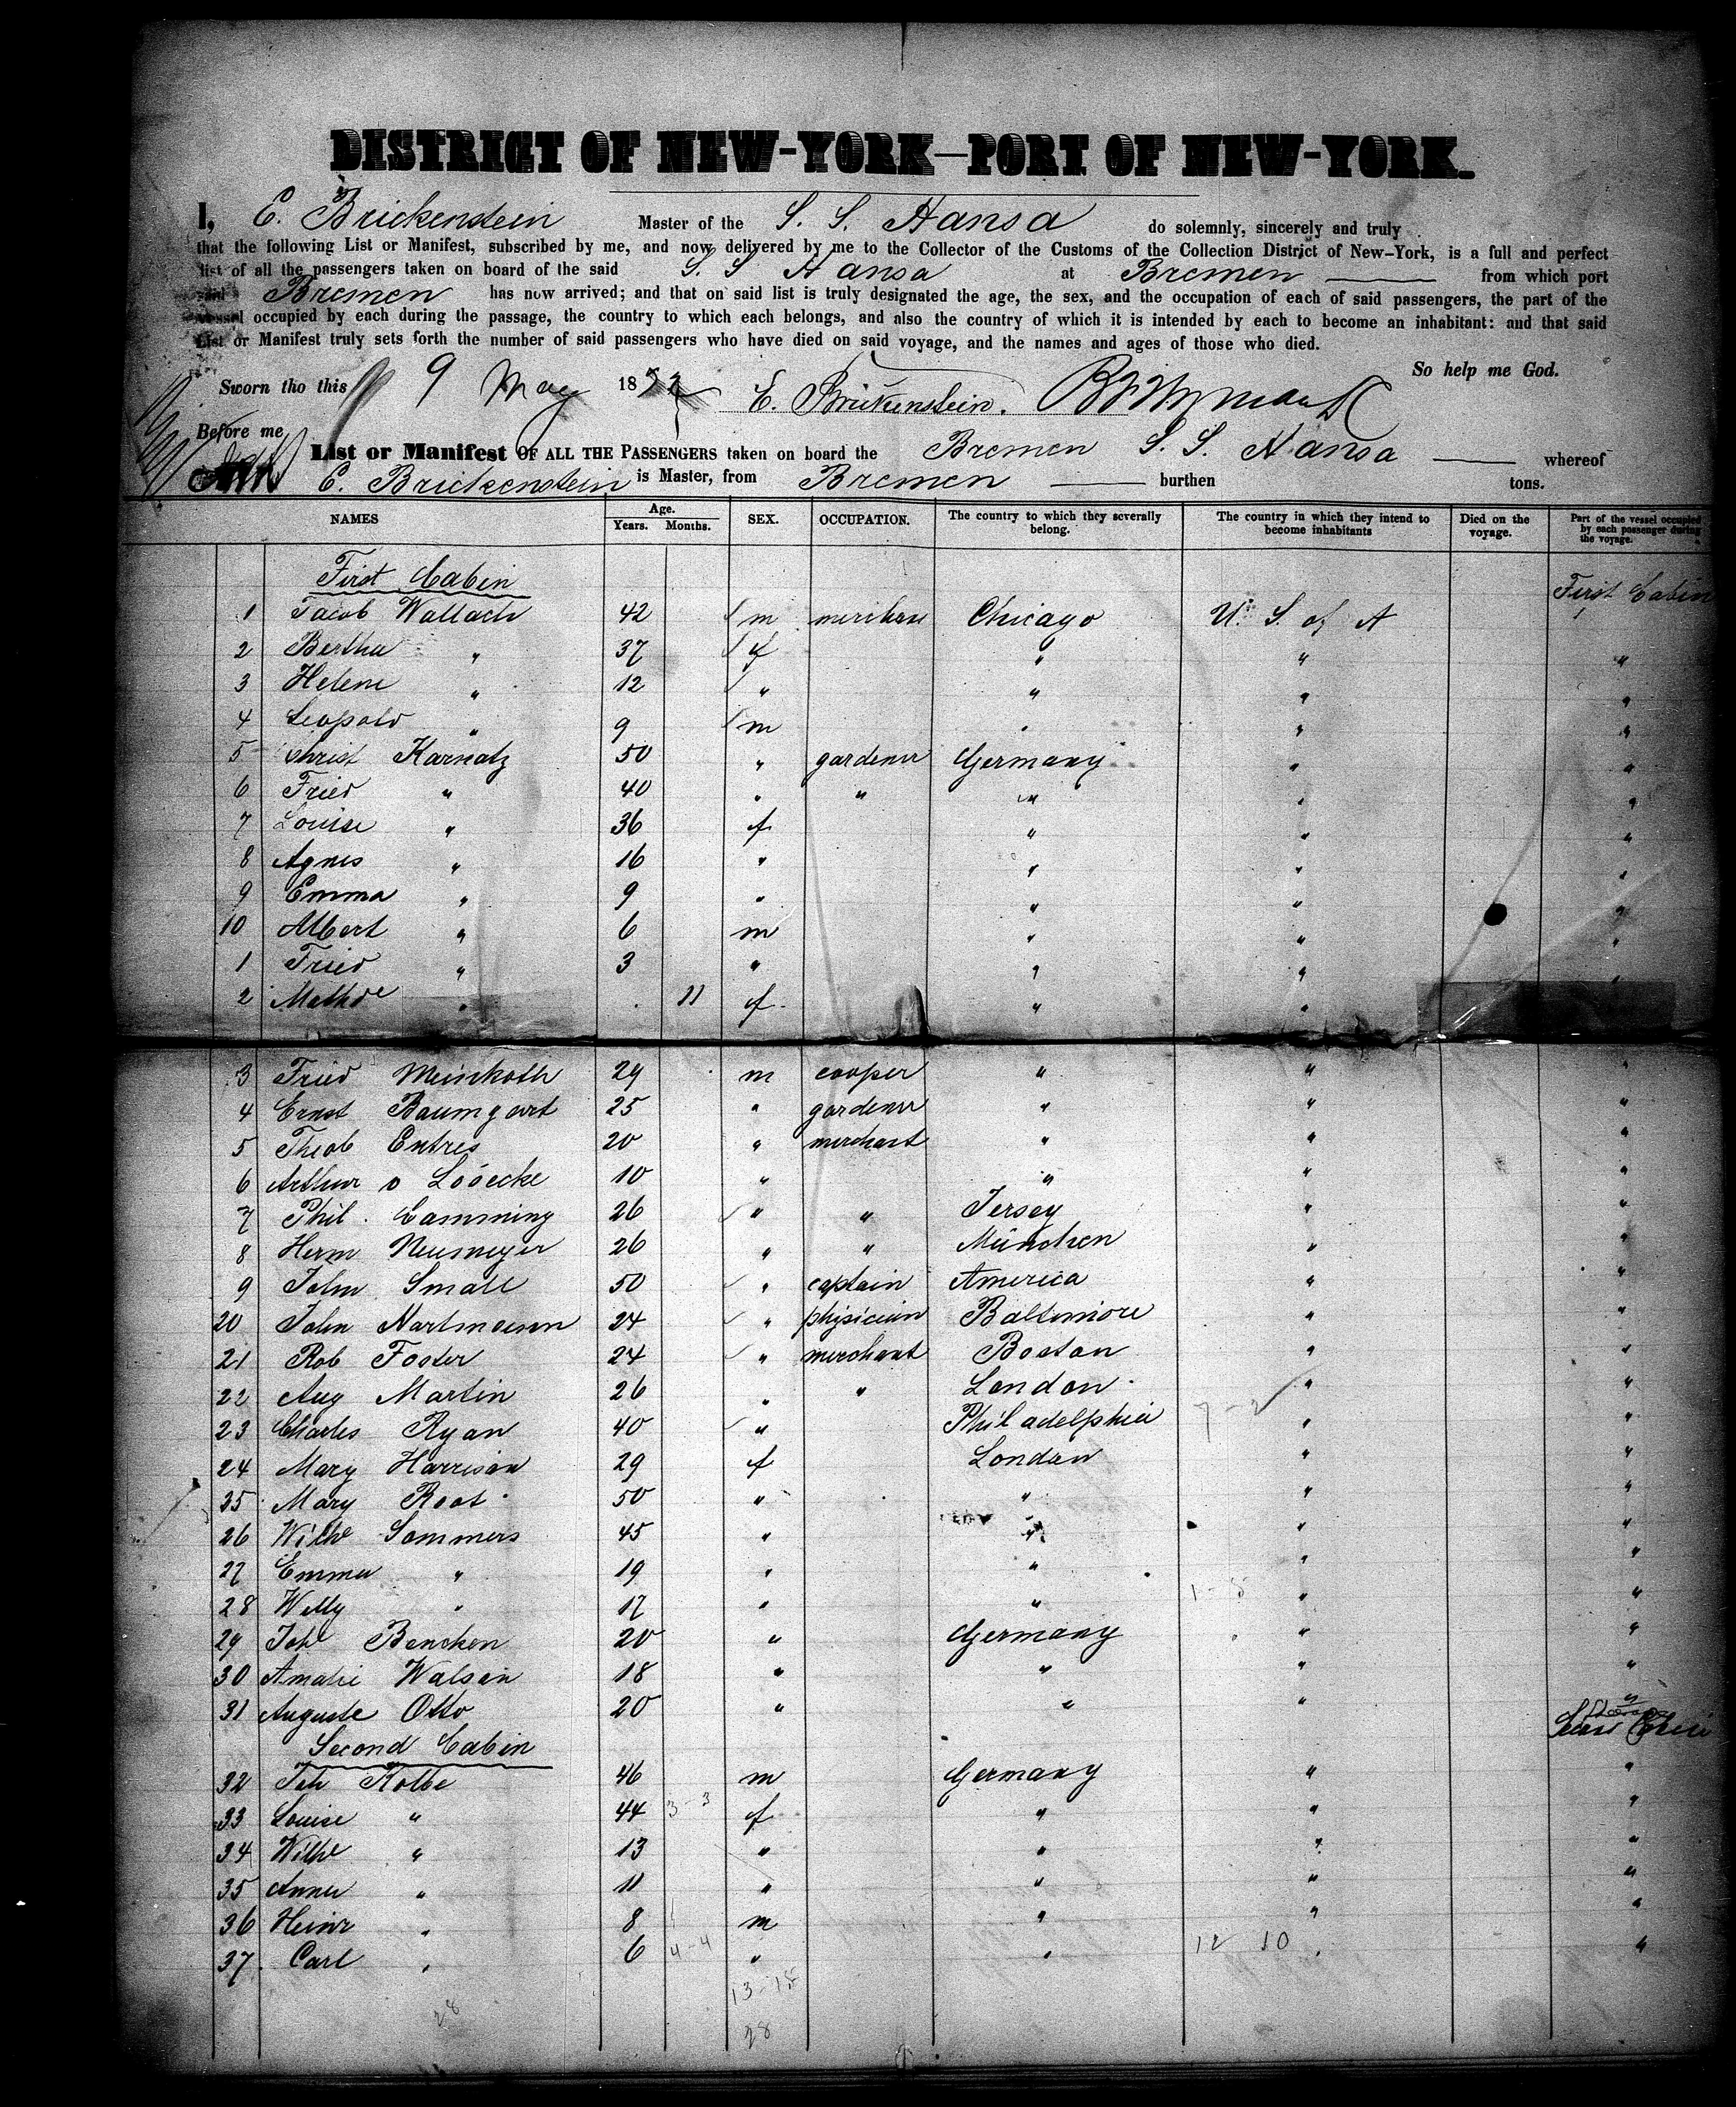 DISTRICT OF NEW-YORK—PORT OF NEW-YORK.
I, E. Brickenstein Master of the S. S. Hansa do solemnly, sincerely and truly
that the following List or Manifest, subscribed by me, and now delivered by me to the Collector of the Customs of the Collection District of New-York, is a full and perfect
list of all the passengers taken on board of the said S. S Hansa at Bremen from which port
Bremen has now arrived; and that on said list is truly designated the age, the sex, and the occupation of each of said passengers, the part of the
vessel occupied by each during the passage, the country to which each belongs, and also the country of which it is intended by each to become an inhabitant: and that said
List or Manifest truly sets forth the number of said passengers who have died on said voyage, and the names and ages of those who died.
So help me God.
Sworn tho this 9 May 18 E. Brickenstein.
Before me
List or Manifest OF ALL THE PASSENGERS taken on board the Bremen S. S. Hansa whereof
E. Brickenstein is Master, from Bremen burthen tons.
NAMES Age. Years. Months. SEX. OCCUPATION. The country to which they severally belong. The country in which they intend to become inhabitants Died on the voyage. Part of the vessel occupied by each passenger during the voyage.
First Cabin First Cabin
1 Jacob Wallach 42 m Chicago U. S. of A
2 Bertha " 37 f " " "
3 Helene " 12 " " " "
4 Leopold " 9 m " " "
5 Christ Karnatz 50 " gardener Germany " "
6 Fried " 40 " " " " "
7 Louise " 36 f " " "
8 Agnes " 16 " " " "
9 Emma " 9 " " " "
10 Albert " 6 m " " "
1 Fried " 3 " " " "
2 Mathde " 11 f " "
3 Fried Meinkoth 29 m cooper " " "
4 Ernst Baumgart 25 " gardener " " "
5 Theob Entres 20 " merchant " " "
6 Arthur v 10 " " " "
7 Phil. 26 " " Jersey " "
8 Herm Neumeyer 26 " " München " "
9 John Small 50 " captain America " "
20 John Hartmann 24 " physician Baltimore " "
21 Rob Foster 24 " merchant Boston " "
22 Aug Martin 26 " " London " "
23 Charles Ryan 40 " Philadelphia " "
24 Mary Harrison 29 f London " "
25 Mary Root 50 " " " "
26 Wilhe Sommers 45 " " " "
27 Emma " 19 " " " "
28 Willy " 17 " " " "
29 Johe Bencken 20 " Germany " "
30 Amalie Walsen 18 " " " "
31 Auguste Otto 20 " " " "
Second Cabin
32 Joh Kolbe 46 m Germany " "
33 Louise " 44 3-3 f " " "
34 Wilhe " 13 " " " "
35 Anna " 11 " " " "
36 Heinr " 8 m " " "
37. Carl " 6 4-4 " " 12 10 " "
13-15
28 28